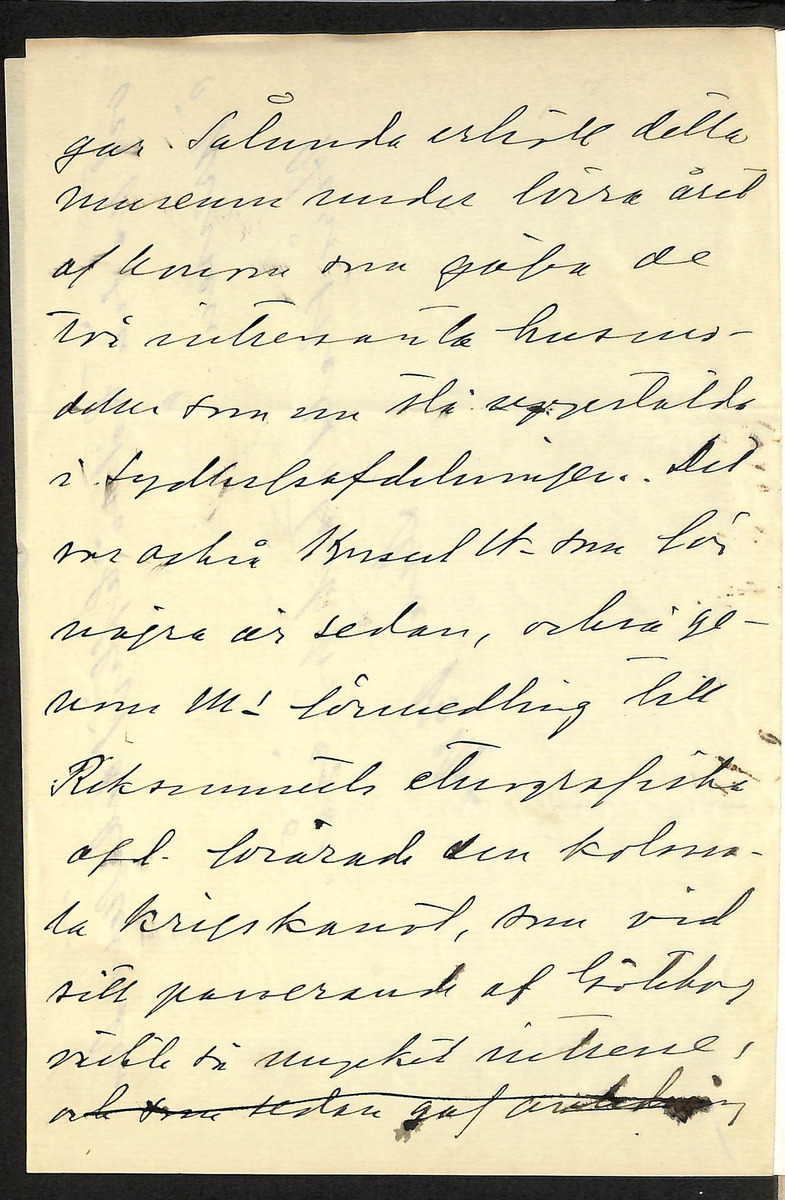 gar. Sålunda erhöll detta
museum under förra året
af honom som gåfva de
två intressanta husmo-
deller som nu stå uppstälda
i Sydhafsafdelningen. Det
var också Konsul W- som för
några år sedan, också ge-
nom M:s förmedling till
Riksmuseets etnografiska
afd. förärade den kolossa-
la krigskanot, som vid
sitt passerande af Göteborg
väckte så mycket intresse,
och som sedan gaf anledning